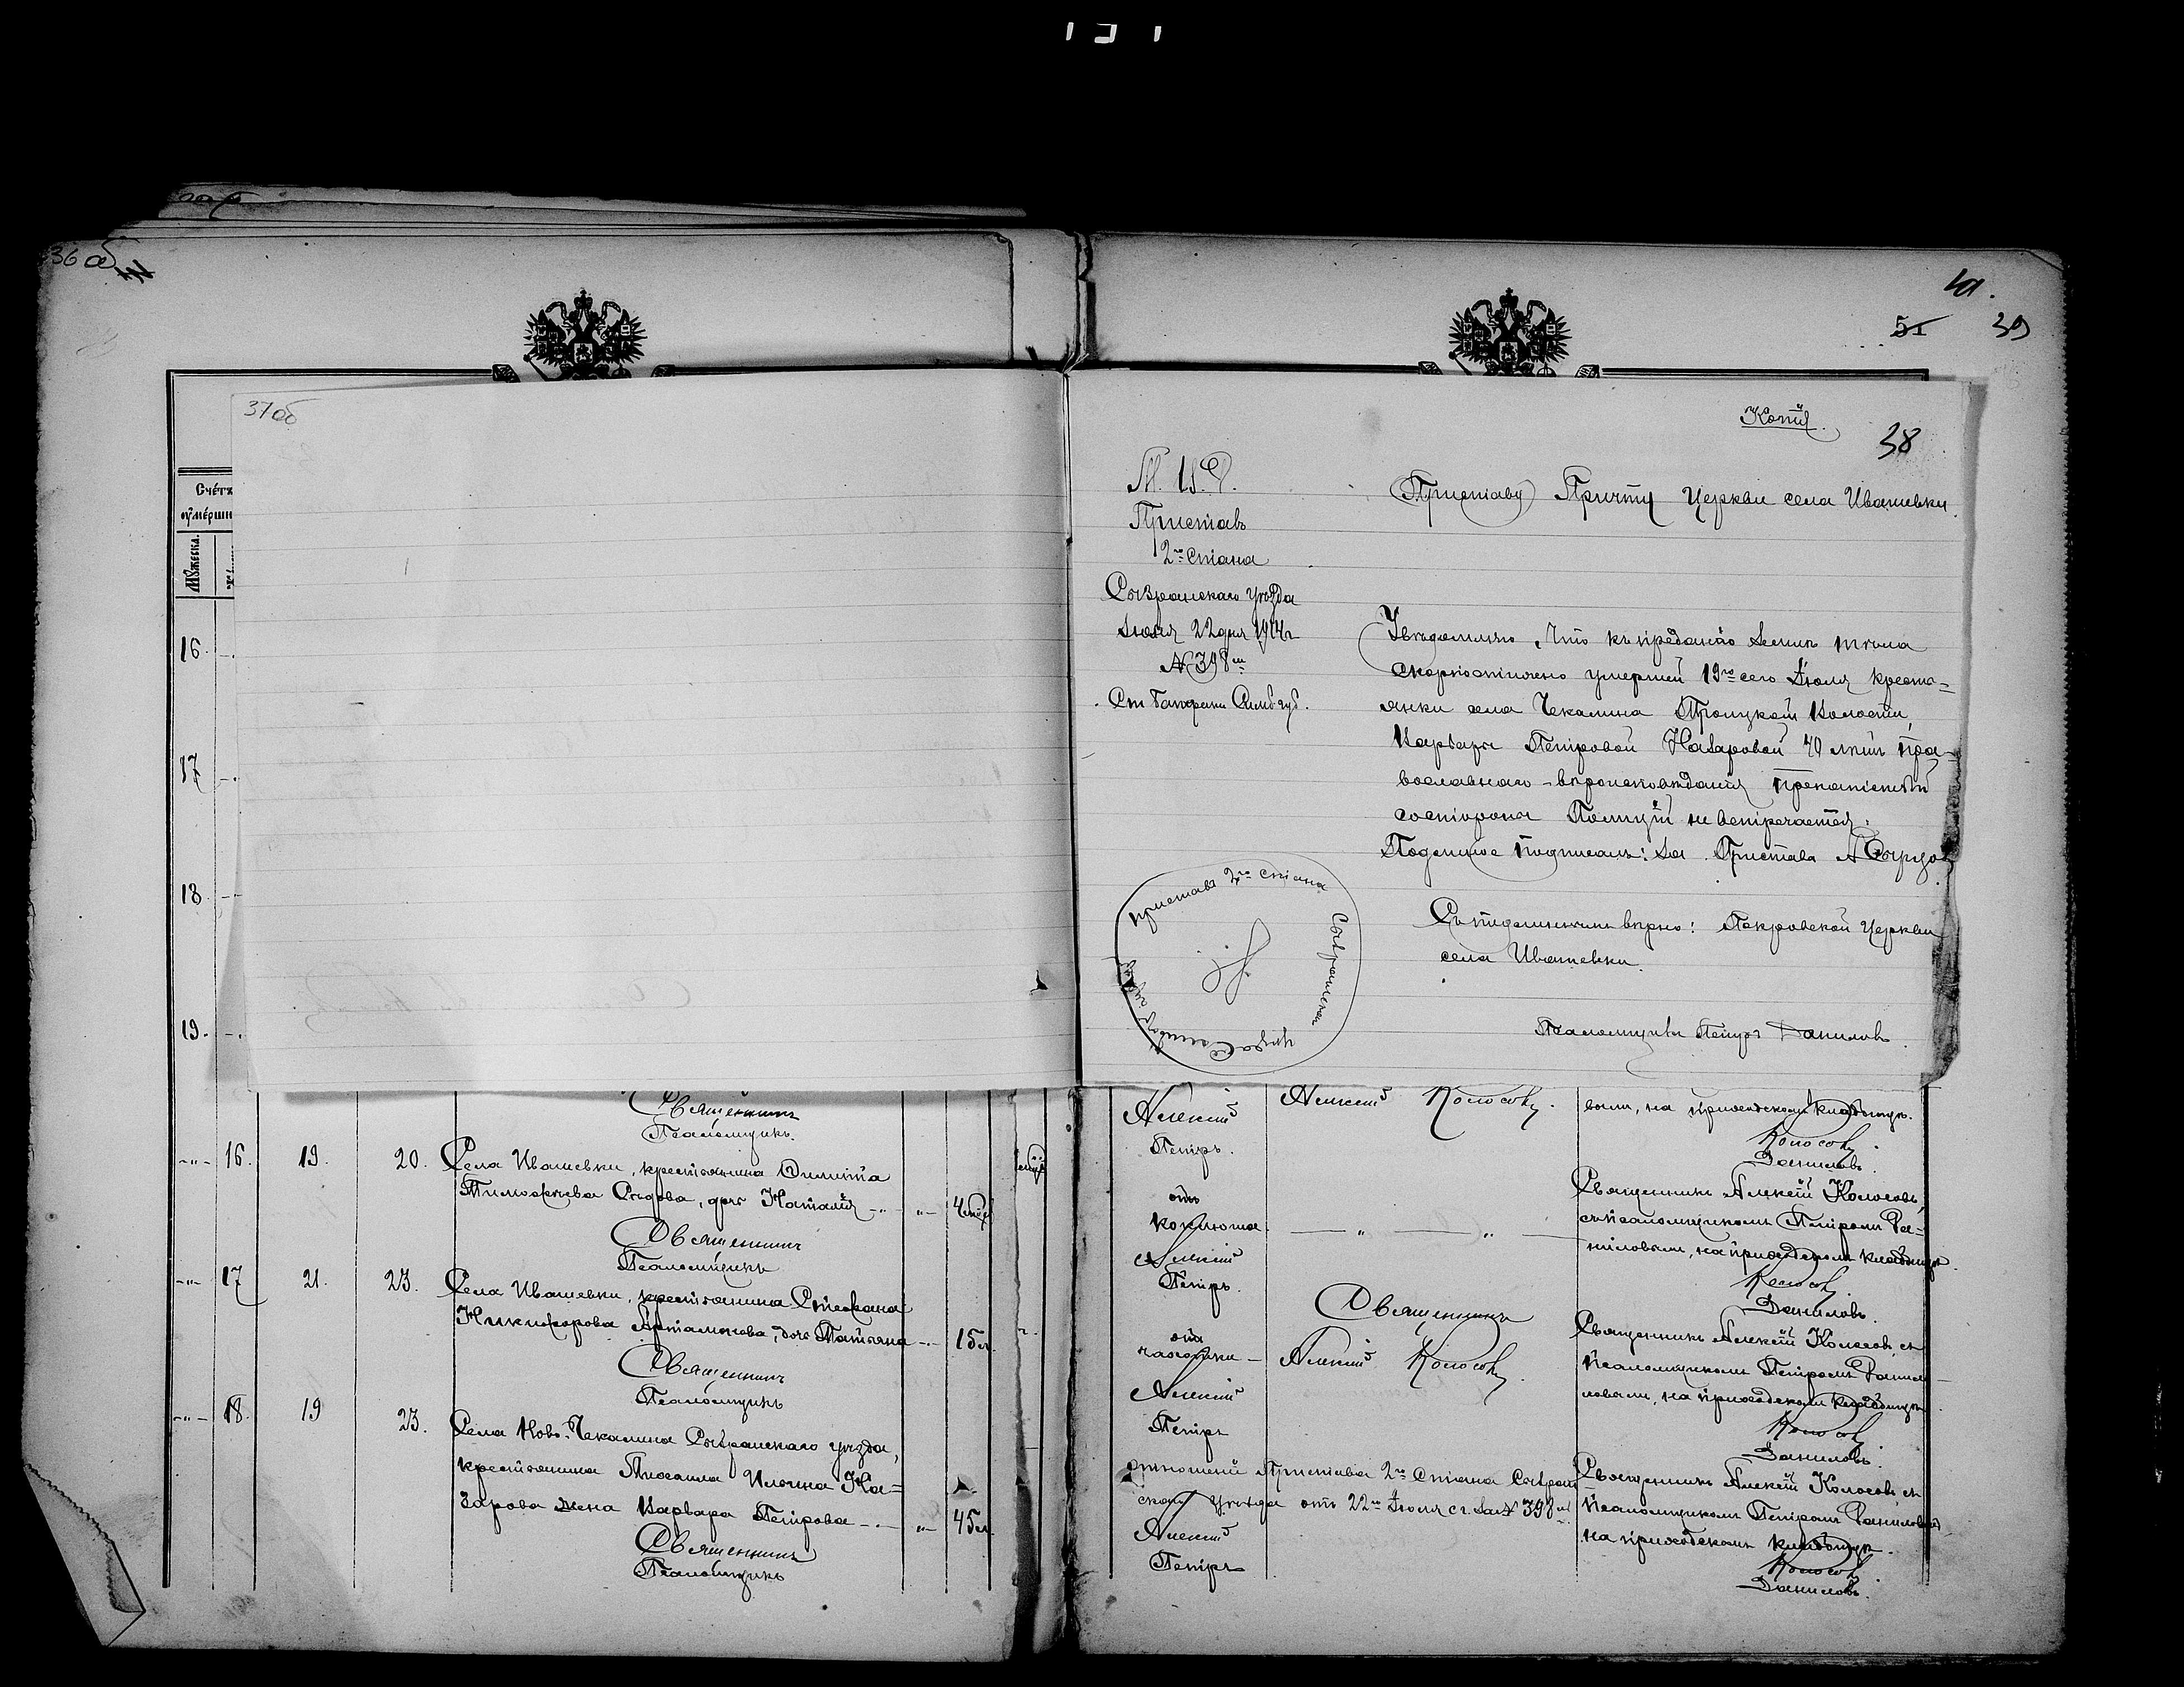 36 об
37 об
51
39
Счётъ
умéрши
Мужеска.
16.
17
18.
19.
Копія.
38
М. В. Д.
Приставъ
2го Стана
Сызранскаго уѣзда
Іюля 22 дня 1914 г
№ 398
Ст Батраки Симб. губ.
Приставу Причту Церкви села Ивашевки.
Увѣдомляю, что къ преданію землѣ тѣла
скоропостижно умершей 19го сего Іюля кресть=
янки села Чекалина Троицкой волости,
Варвары Петровой Назаровой 40 лѣтъ пра-
вославнаго вѣроисповѣданія препятствій
со стороны Полиціи не встрѣчается.
Подлинное подписалъ: За Пристава
Съ подлиннымъ вѣрно: Покровской Церкви
села Ивашевки.
Псаломщикъ Петръ Даниловъ.
приставъ 2го стана Сызранскаго уѣзда
Священникъ
Псаломщикъ.
Алексій
Петръ.
Алексій Колосовъ.
вымъ, на приходскомъ кладбищѣ.
Колосовъ
Даниловъ.
-"- 16. 19. 20. Села Ивашевки, крестьянина Филиппа
Тимофѣева Сѣдова, дочь Наталія -"- "-
Священникъ
Псаломщикъ
отъ
коклюша.
Алексій
Петръ.
Священникъ Алексій Колосовъ,
съ псаломщикомъ Петромъ Да-
ниловымъ, на приходскомъ кладбищѣ.
Колосовъ
Даниловъ.
-"- 17 21. 23. Села Ивашевки, крестьянина Стефана
Никифорова Артамонова, дочь Татьяна -"- 15 л.
Священникъ
Псаломщикъ
отъ
чахотки -
Алексій
Петръ
Священникъ
Алексій Колосовъ.
Священникъ Алексій Колосовъ съ
псаломщикомъ Петромъ Данил-
ловымъ, на приходскомъ кладбищѣ.
Колосовъ
Даниловъ.
-"- 18. 19 23. Села Ново-Чекалина Сызранскаго уѣзда,
крестьянина Михаила Ильина На=
зарова жена Варвара Петрова - "- 45 л.
Священникъ
Псаломщикъ
отношеніи Пристава 2го Стана Сызран-
скаго уѣзда отъ 22го Іюля с. г. за № 398
Алексій
Петръ
Священникъ Алексій Колосовъ съ
псаломщикомъ Петромъ Даниловымъ
на приходскомъ кладбищѣ.
Колосовъ
Даниловъ.